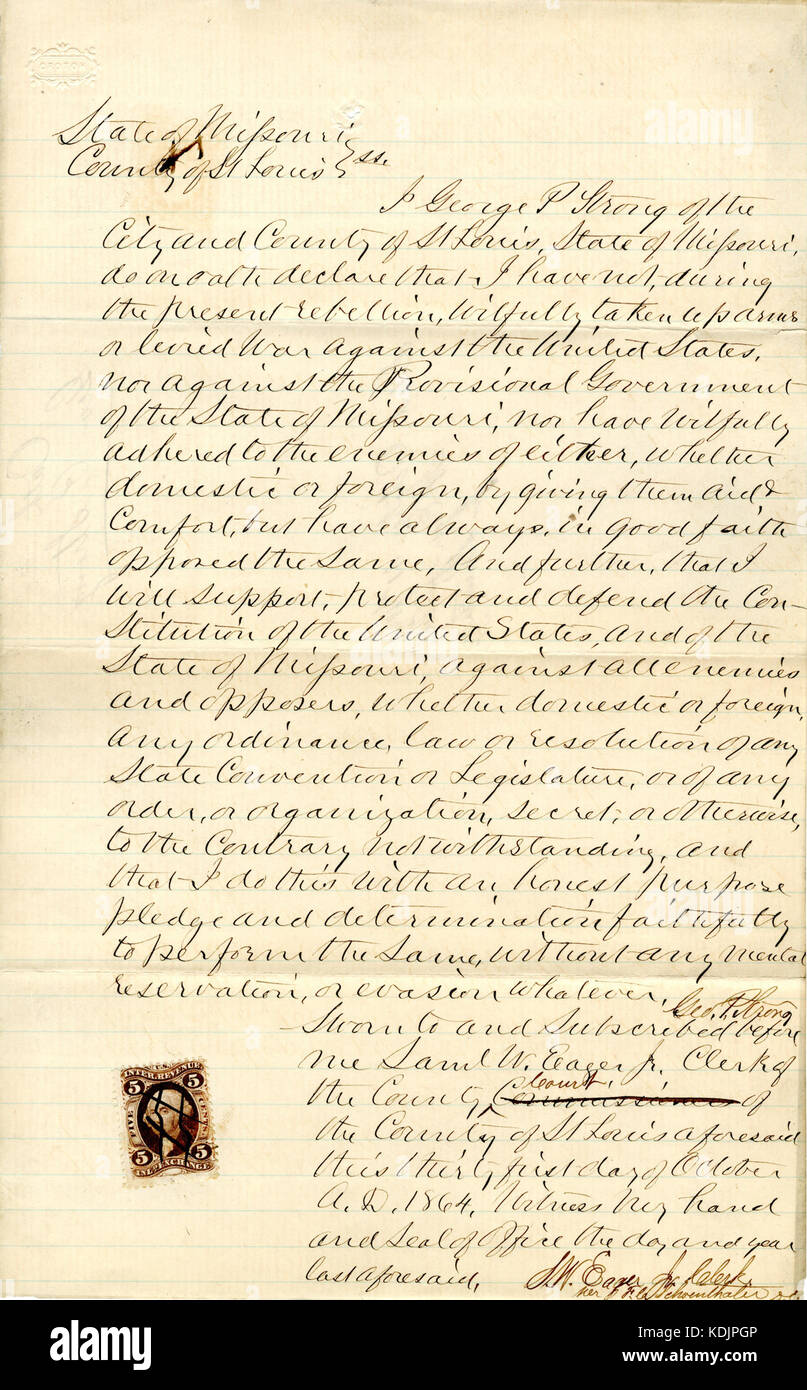 CROTON
State of Missouri
County of St Louis } ss.
I George P Strong of the
City and County of St Louis, State of Missouri,
do on oath declare that I have not, during
the present rebellion, wilfully taken up arms
or levied War against the United States,
nor against the Provisional Government
of the State of Missouri, nor have wilfully
adhered to the enemies of either, whether
domestic or foreign, by giving them aid &
Comfort, but have always, in good faith
opposed the same, And further, that I
will support, protect and defend the Con-
stitution of the United States, and of the
State of Missouri, against all enemies
and opposers, whether domestic or foreign,
any ordinance, law or resolution of any
State Convention or Legislature, or of any
order, or organization, secret, or otherwise,
to the Contrary notwithstanding, and
that I do this with an honest purpose
pledge and determination faithfully
to perform the same, without any mental
reservation, or evasion whatever,
Geo. P. Strong
Sworn to and Subscribed before
me Saml W. Eager Jr. Clerk of
the County Court of
the County of St Louis aforesaid
this thirty first day of October
A.D. 1864, Witness my hand
and Seal of Office the day and year
last aforesaid,
S. W. Eager Jr Clerk.
U.S.
INTER. REVENUE
5 5
FIVE CENTS
5 5
INL. EXCHANGE
alamy
alamy
Image ID: KDJPGP
www.alamy.com